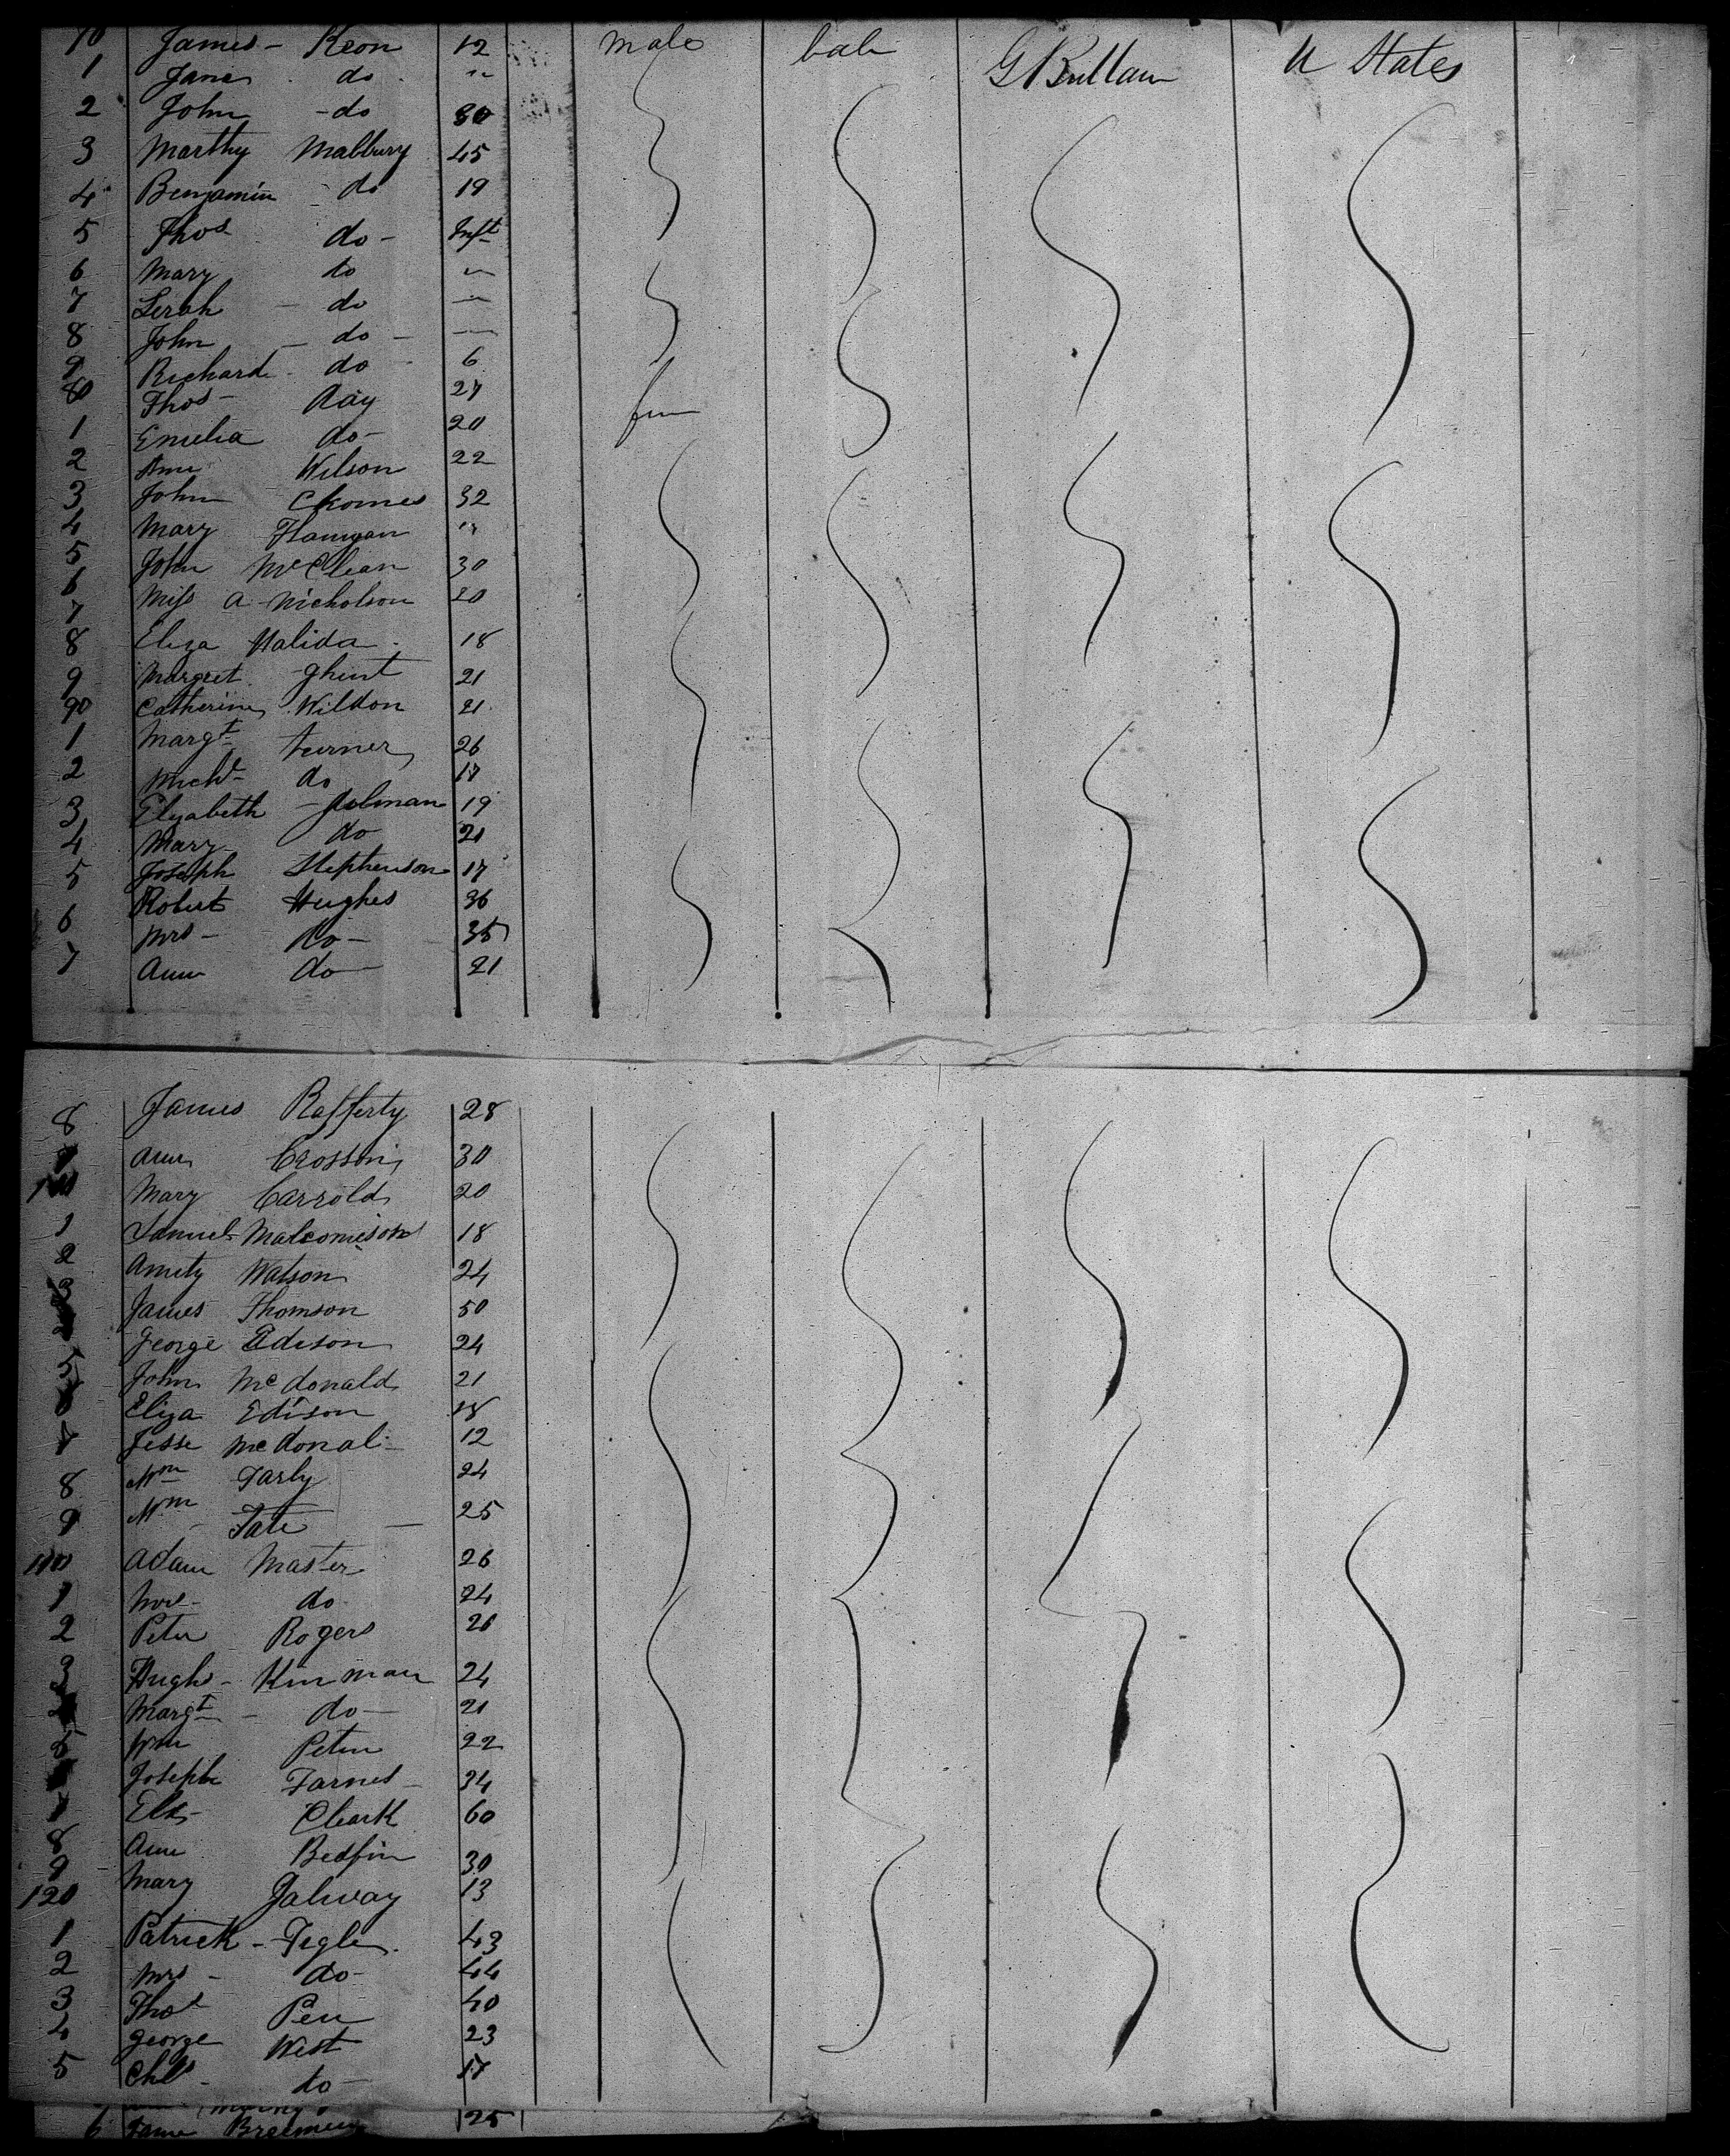 70 James - Keon 12 male lab G Brittain U States
1 Jane do "
2 John - do 30
3 Marthy Mabbury 45
4 Benjamin do 19
5 Thos do - Inft
6 Mary do "
7 Serah - do "
8 John - do - "
9 Richard - do 6
80 Thos - Ray 27 fem
1 Emelia do - 20
2 Ann Wilson 22
3 John Chomes 32
4 Mary Flanigan "
5 John McClean 30
6 Miss A - Nicholson 20
7
8 Eliza Halida - 18
9 Margret Ghent 21
90 Catherine Wildon 21
1 Margt Turner 26
2 Michl do 17
3 Elizabeth - Jolman 19
4 Mary do 21
5 Joseph Stephenson 17
Robert Hughes 36
6 Mrs - do - 35
7 Ann do - 21
8 James Rafferty 28
Ann Crossin 30
100 Mary Carrold 20
1 Samuel Malcomison 18
2 Amity Watson 24
3 James Thomson 50
George Edison 24
5 John Mc donald 21
Eliza Edison 18
7 Jesse Mc donal - 12
8 Wm Tarly 24
9 Wm - Tate - 25
110 Adam Master 26
1 Mrs - do 24
2 Peter Rogers 26
3 Hugh - Kinman 24
Margt - do - 21
5 Wm Peter 22
Joseph Farnes - 34
Clark 60
8 Ann Bedfin 30
9 Mary Galway 13
120
1 Patrick - Tegle 43
2 Mrs - do - 44
3 Thos Pen 40
4 George West 23
5 Chls - do - 17
6 Jane 25